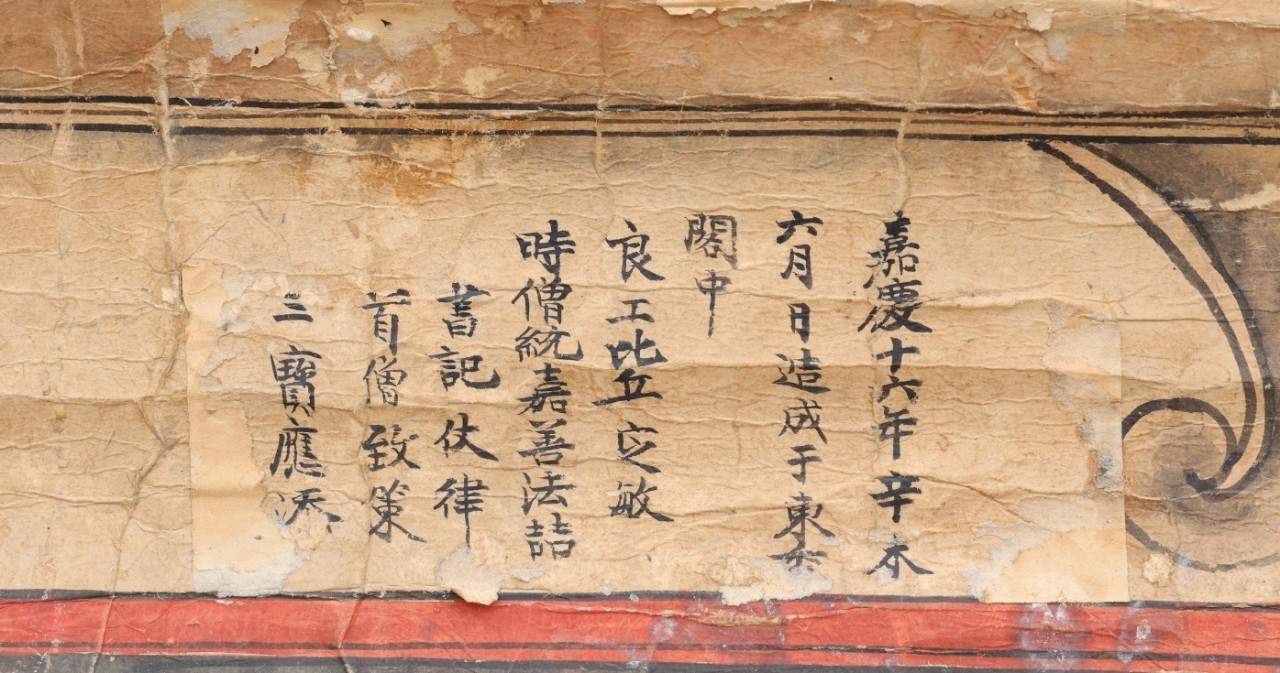 嘉慶十六年辛未
六月日造成于東
閣中
良工比丘定敏
時僧統嘉善法喆
書記仗律
首僧致策
三寶應添